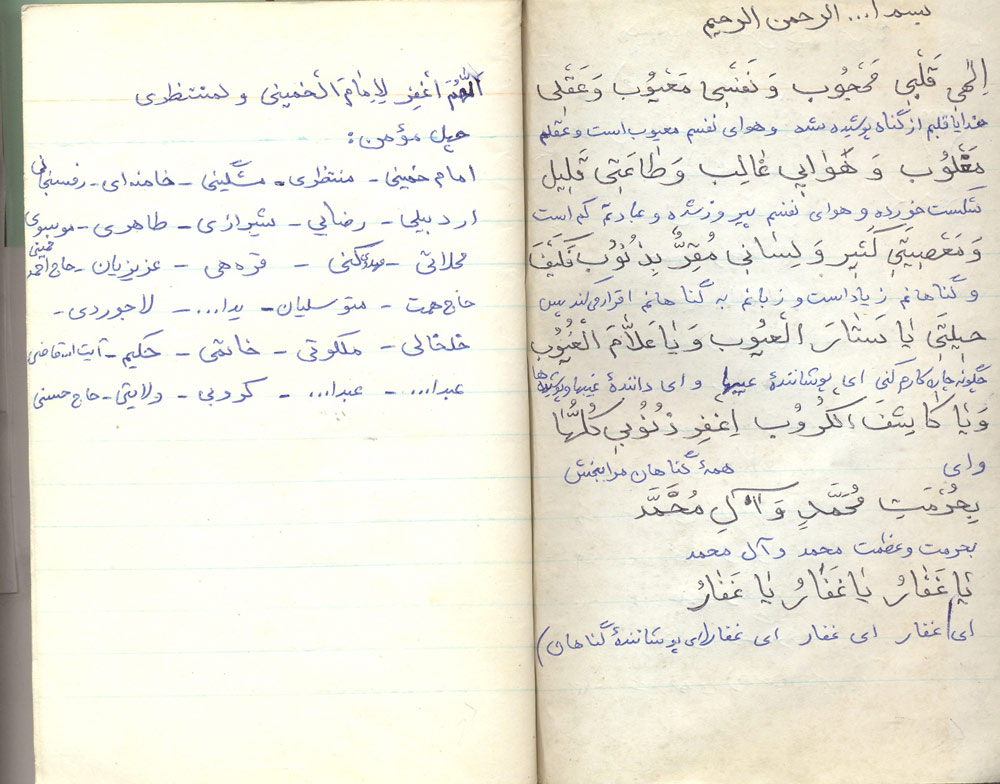 بسم ا... الرحمن الرحیم
اِلٰهی قَلْبی مَحْجُوب وَ نَفْسی مَعْیُوب وَ عَقْلی
خدایا قلبم از گناه پوشیده شده و هوای نفسم معیوب است و عقلم
مَغْلُوب وَ هَوٰایی غٰالِب وَ طٰاعَتی قَلِیل
شکست خورده و هوای نفسم پیروز شده و عبادتم کم است
وَ مَعْصِیَتی کَثیر وَ لِسٰانی مُقِرٌّ بِذُنُوب فَکَیْفَ
و گناهانم زیاد است و زبانم به گناهانم اقرار می‌کند پس
حیلَتی یٰا سَتّٰارَ الْعُیُوب وَ یٰا عَلّٰامَ الْغُیُوب
چگونه چاره کارم کنی ای پوشانندهٔ عیبها و ای دانندهٔ غیبها و پوشیده‌ها
وَ یٰا کٰاشِفَ الْکُرُوب اِغْفِر ذُنُوبی کُلَّهٰا
و ای همهٔ گناهان مرا ببخش
بِحُرْمَتِ مُحَمَّدٍ وَ آلِ مُحَمَّدَ
بحرمت و عظمت محمد و آل محمد
یٰا غَفّٰارُ یٰا غَفّٰارُ یٰا غَفّٰارُ
ای غفار ای غفار ای غفار (ای پوشانندهٔ گناهان)
اللّهُمَ اَغْفِر لِلاِمٰامَ الْخمینی و لمنتظری
حیل مؤمن:
امام خمینی - منتظری - مشگینی - خامنه‌ای - رفسنجانی
اردبیلی - رضایی - شیرازی - طاهری - موسوی خمینی
محلاتی - مهدوی کنی - قره‌هی - عزیزیان - حاج احمد
حاج همت - متوسلیان - یدا... - لاجوردی -
خلخالی - ملکوتی - خاتمی - حکیم - آیت الله قاضی
عبدا... - عبدا... - کروبی - ولایتی - حاج حسنی